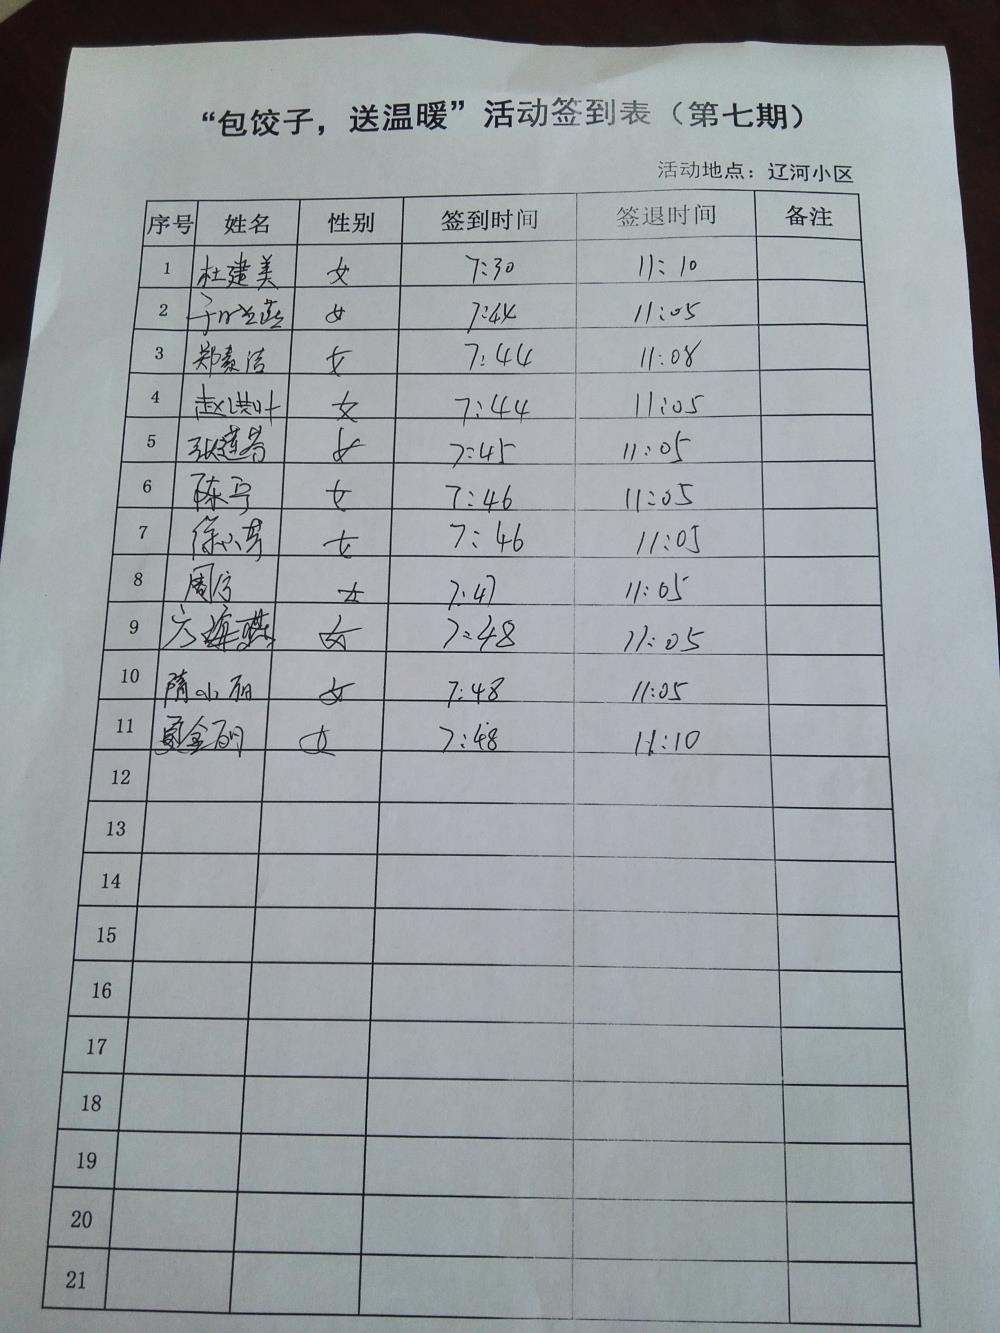 “包饺子，送温暖”活动签到表（第七期）
活动地点：辽河小区
序号 姓名 性别 签到时间 签退时间 备注
1 杜建美 女 7:30 11:10
2 女 7:44 11:05
3 郑素洁 女 7:44 11:08
4 赵洪叶 女 7:44 11:05
5 张莲芳 女 7:45 11:05
6 陈宁 女 7:46 11:05
7 徐小芳 女 7:46 11:05
8 周 女 7:47 11:05
9 方海燕 女 7:48 11:05
10 隋小丽 女 7:48 11:05
11 夏金丽 女 7:48 11:10
12
13
14
15
16
17
18
19
20
21